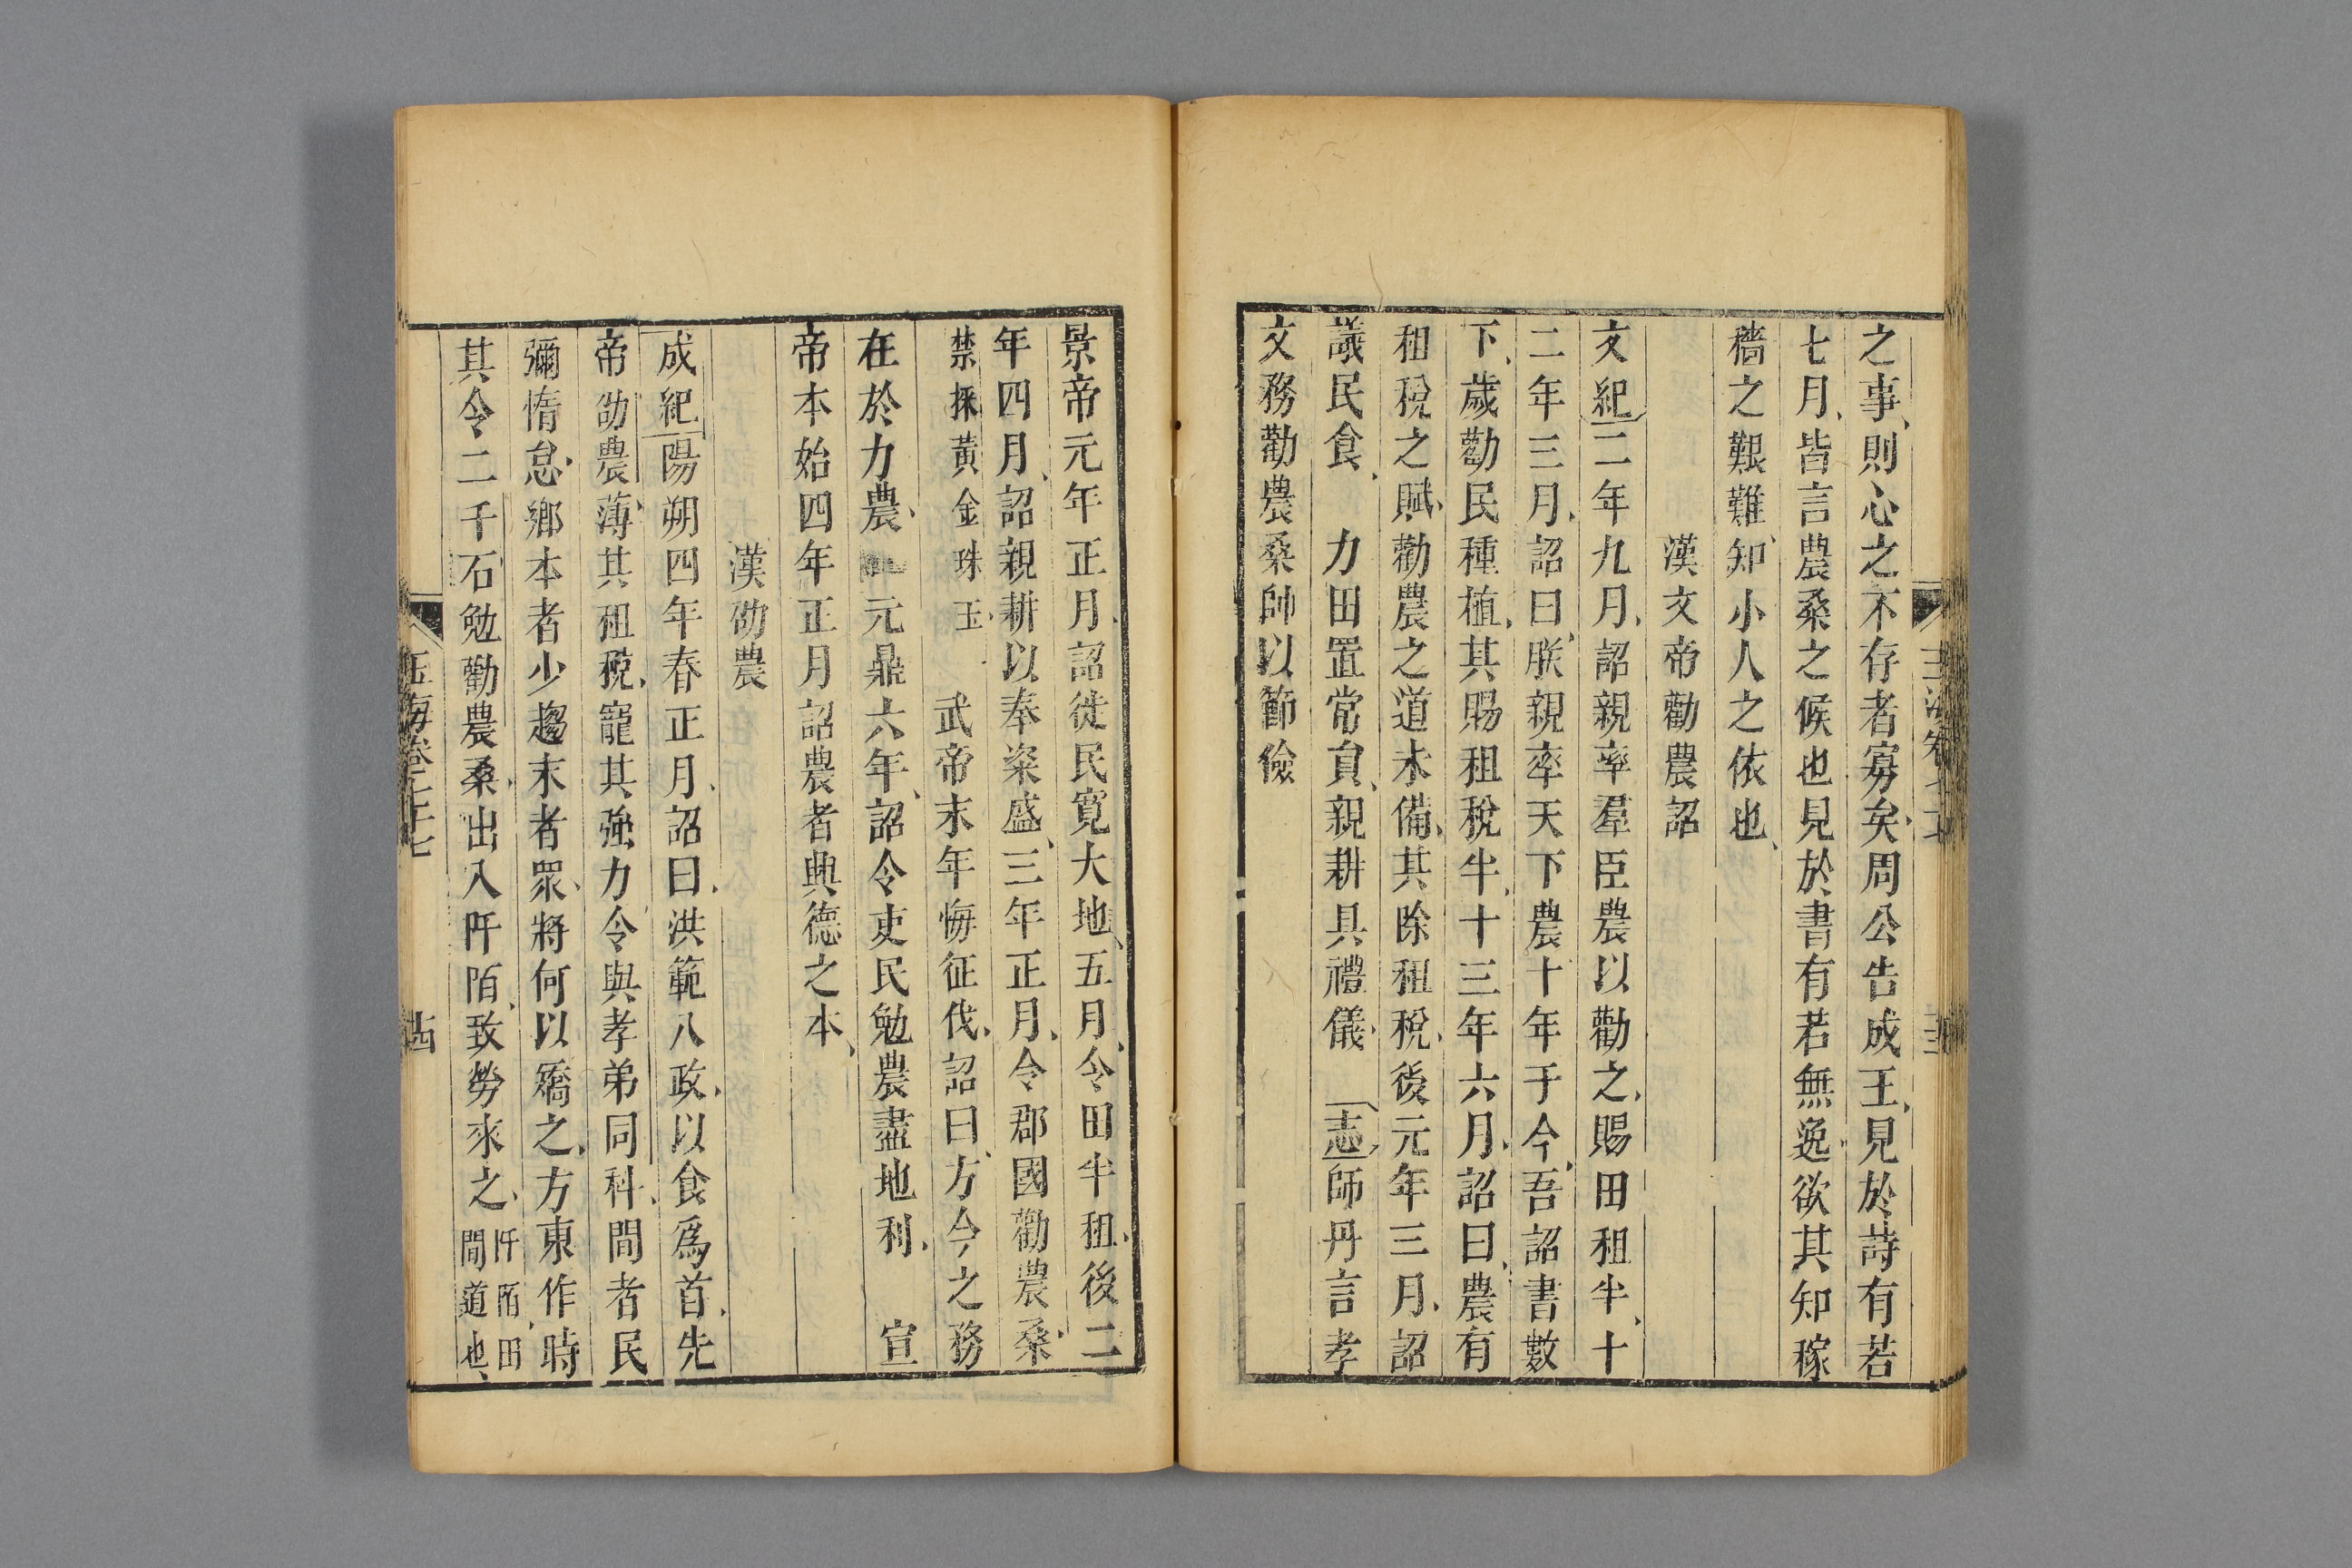 之事則心之不存者寡矣周公告成王見於詩有若
七月皆言農桑之候也見於書有若無逸欲其知稼
穡之艱難知小人之依也
漢文帝勸農詔
文紀二年九月詔親率羣臣農以勸之賜田租半十
二年三月詔曰朕親率天下農十年于今吾詔書數
下歲勸民種植其賜租稅半十三年六月詔曰農有
租稅之賦勸農之道未備其除租稅後元年三月詔
議民食 力田置常員親耕具禮儀 志師丹言孝
文務勸農桑帥以節儉
景帝元年正月詔徙民寬大地五月令田半租後二
年四月詔親耕以奉粢盛三年正月令郡國勸農桑
禁採黃金珠玉 武帝末年悔征伐詔曰方今之務
在於力農 元鼎六年詔令吏民勉農盡地利 宣
帝本始四年正月詔農者興德之本
漢劭農
成紀陽朔四年春正月詔曰洪範八政以食爲首先
帝劭農薄其租稅寵其強力令與孝弟同科間者民
彌惰怠鄉本者少趨末者眾將何以矯之方東作時
其令二千石勉勸農桑出入阡陌致勞來之阡陌田
間道也
玉海卷七十七
十四